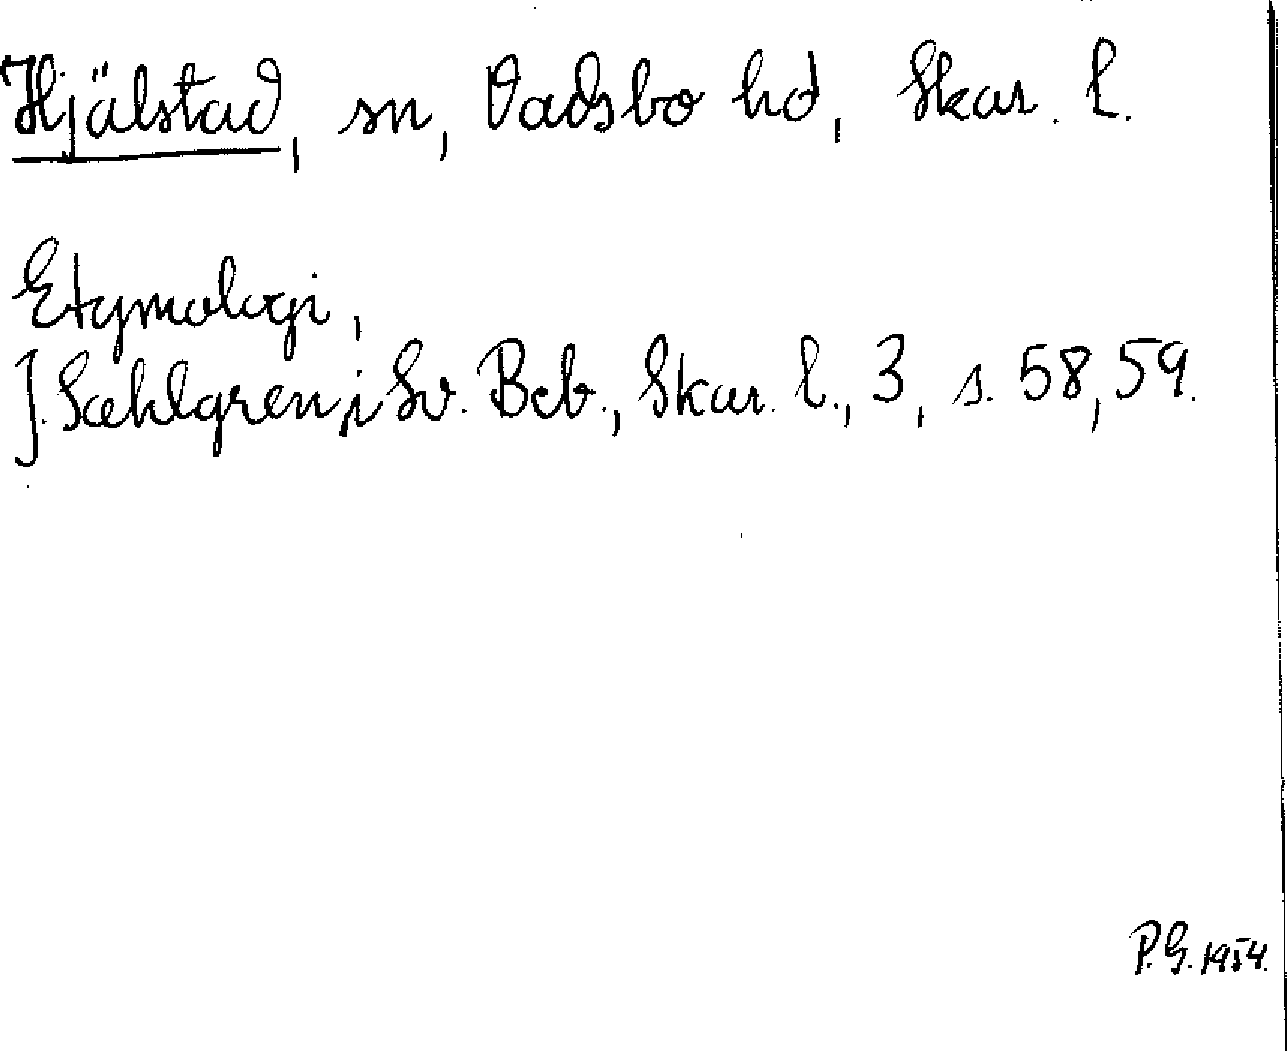 Hjälstad, sn, Vadsbo hd, Skar. l.
Etymologi,
J. Sahlgren, i Sv. Beb., Skar. l., 3, s. 58, 59.
P.G. 1954.